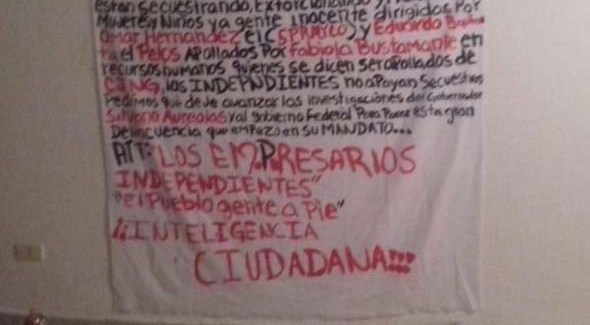 están secuestrando, Extorcionando y
Mujeres y Niños ya gente inocente dirigidos Por
Omar Hernández el CSPRAICO) y Eduardo
el Pelos APollados Por Fabiola BUSTAMANTE en
recursos humanos quienes se dicen ser apollados de
CJNG, los INDEPNDIENTES no aPoyan Secuestros
Pedimos que de Je avanzar las investigaciónes del Gobernador
Silvano Aureolos y al gobierno Federal Para Parar Esta gran
Delincuencia que emPezo en su MANDATO...
ATT: "LOS EMPRESARIOS
INDEPENDIENTES"
"el Pueblo gente a Pie"
¡¡INTELIGENCIA
CIUDADANA!!!